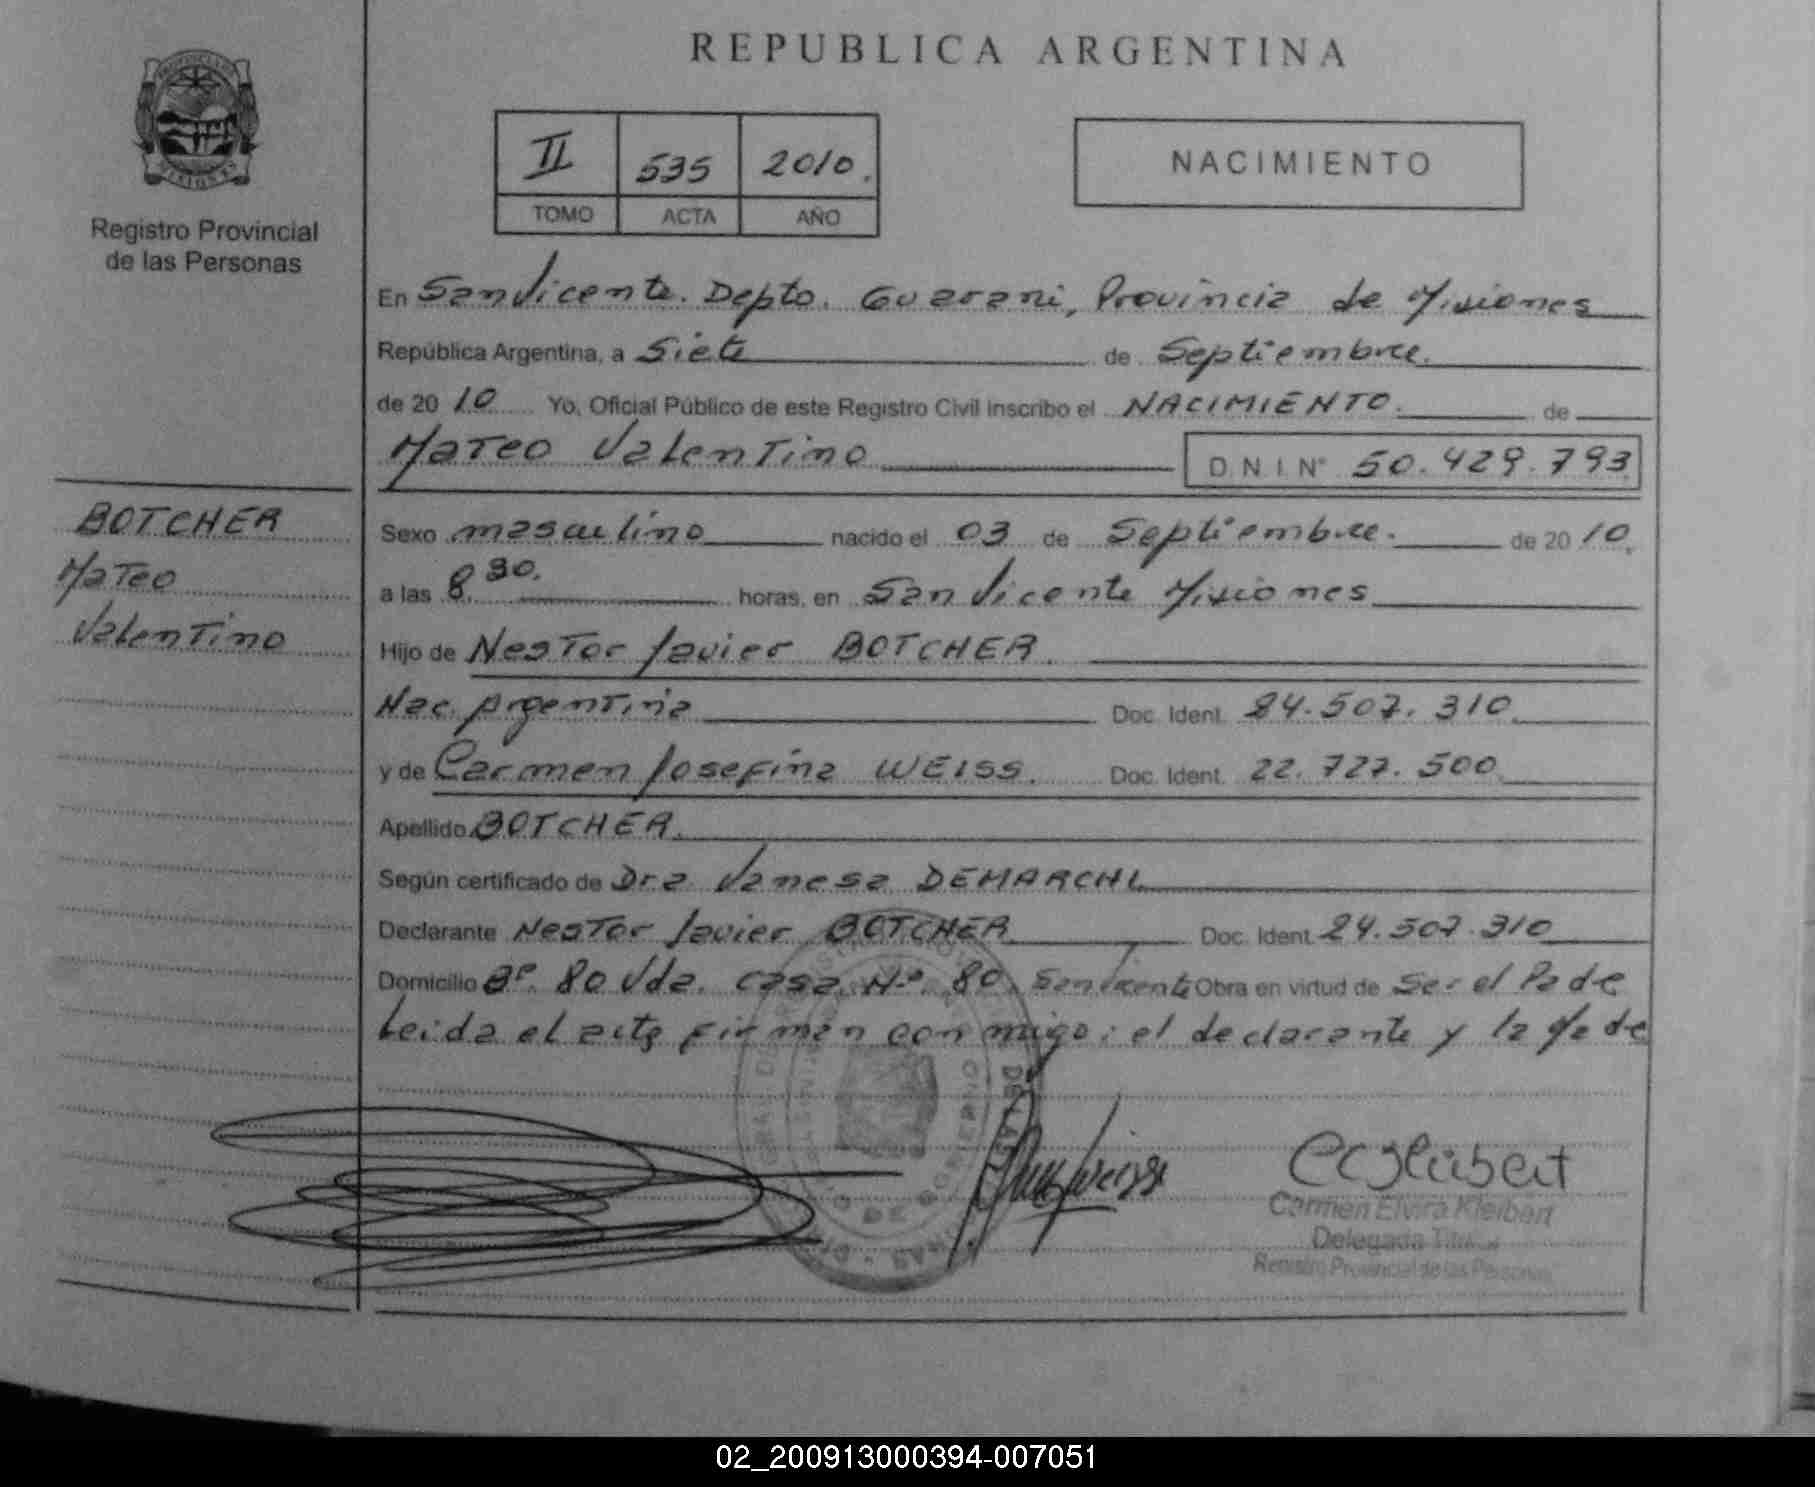 REPUBLICA ARGENTINA
Registro Provincial
de las Personas
II 535 2010.
TOMO ACTA AÑO
NACIMIENTO
En San Vicente. Depto. Guarani, Provincia de Misiones
República Argentina, a Siete de Septiembre.
de 2010 Yo, Oficial Público de este Registro Civil inscribo el NACIMIENTO. de
Mateo Valentino D.N.I. N° 50.429.793
BOTCHER
Mateo
Valentino
Sexo masculino nacido el 03 de Septiembre. de 2010.
a las 8.30. horas, en San Vicente Misiones
Hijo de Nestor Javier BOTCHER.
Nac. Argentina Doc. Ident. 24.507.310
y de Carmen Josefina WEISS. Doc. Ident. 22.727.500
Apellido BOTCHER.
Según certificado de Dra Vanesa DEMARCHI
Declarante Nestor Javier BOTCHER Doc. Ident. 24.507.310
Domicilio Bº. 80 Vda. Casa Nº. 80. San Vicente Obra en virtud de Ser el Padre
Leida el acta firman conmigo: el declarante y la Madre
Carmen Elvira Kleibert
Delegada Titular
Registro Provincial de las Personas
02_200913000394-007051